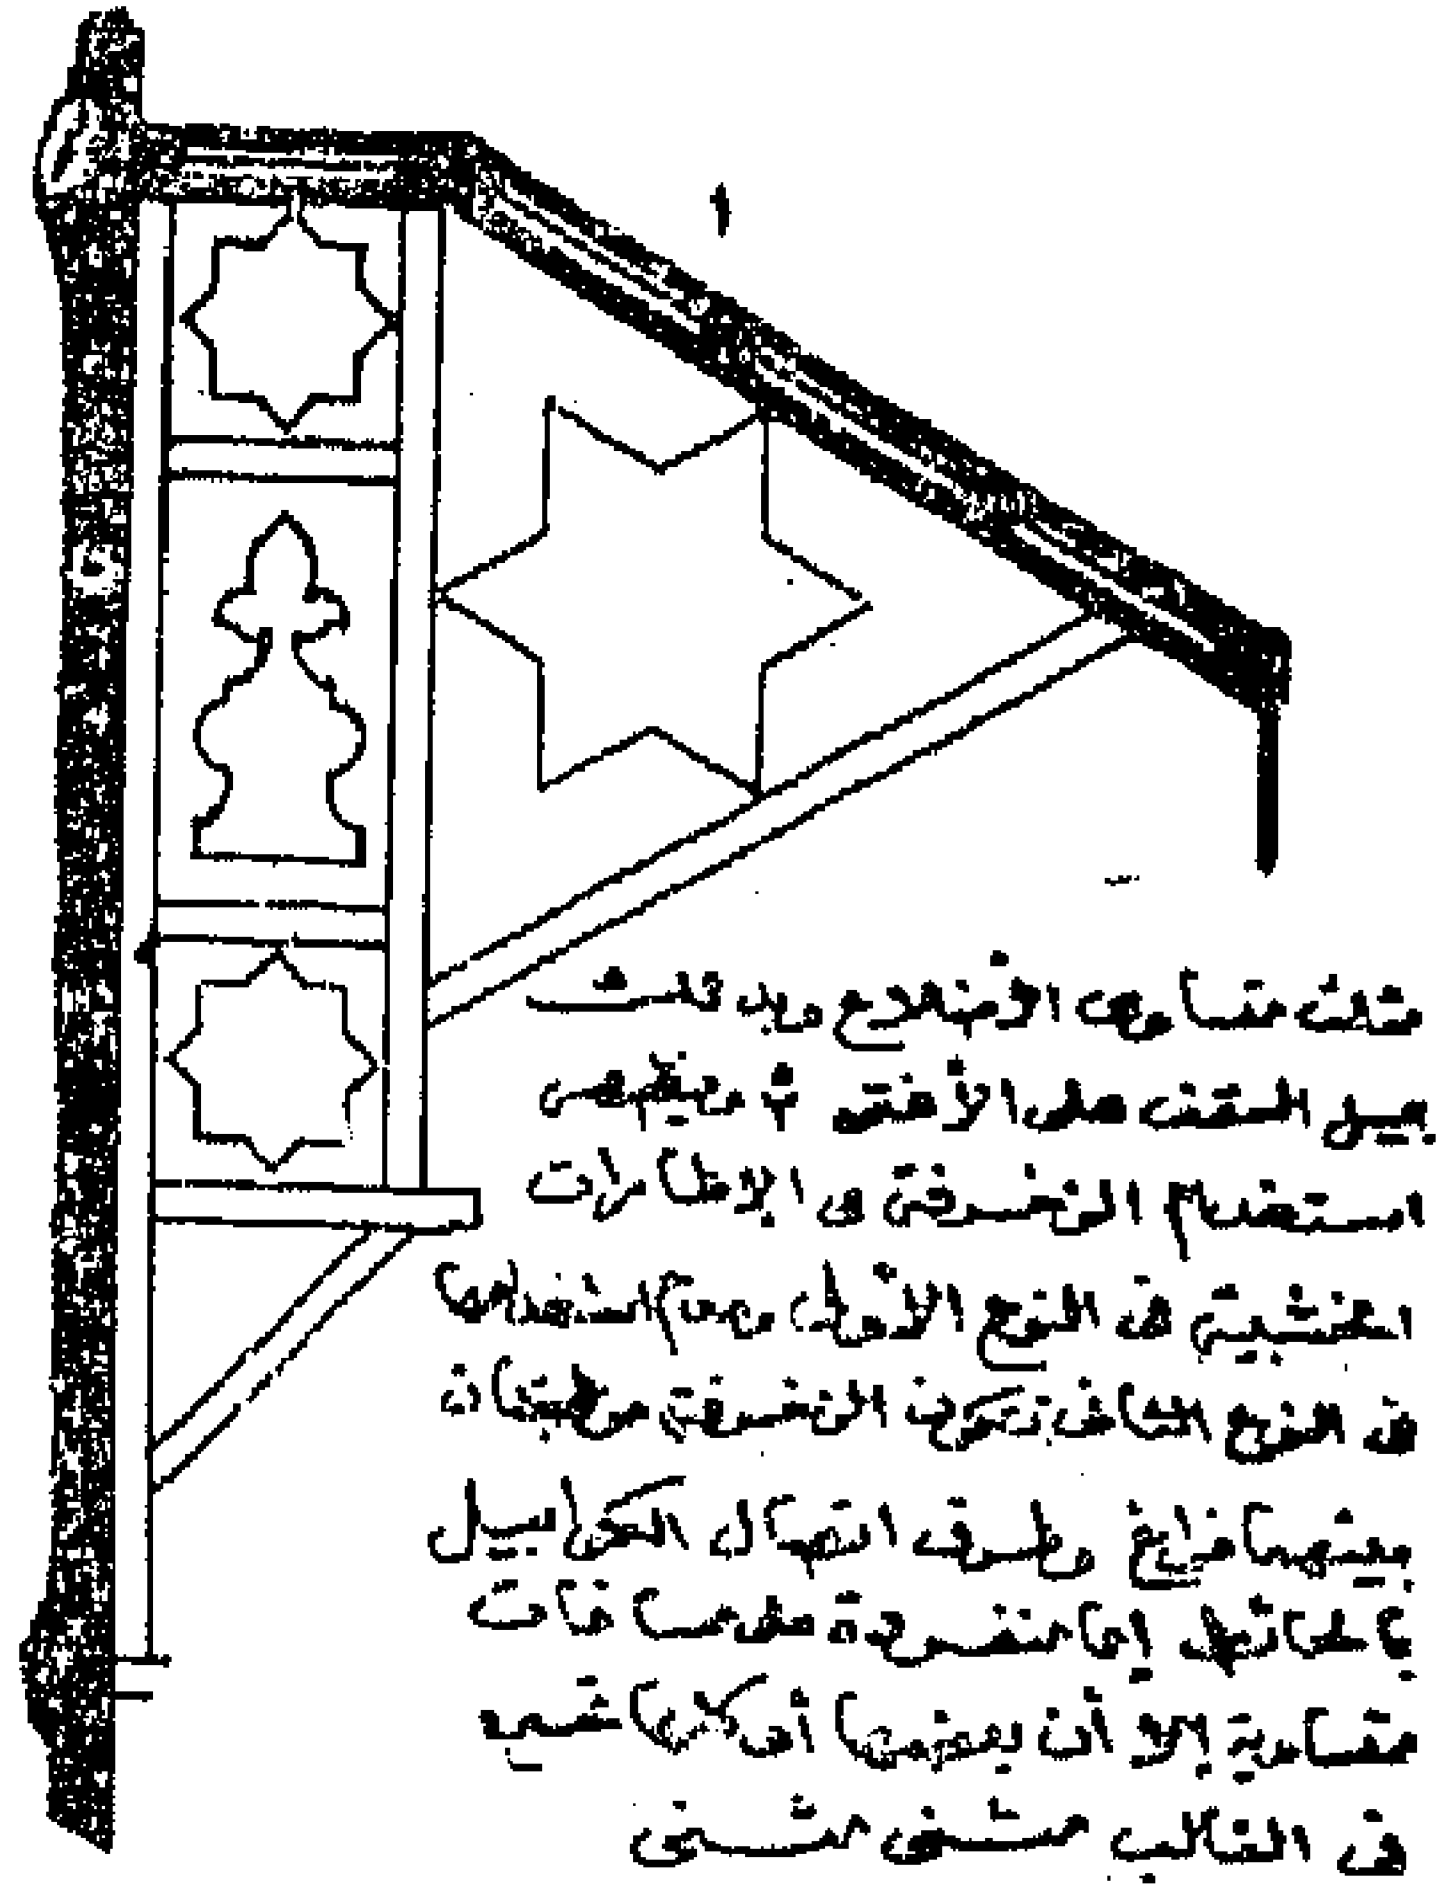 ١
مثلث متساوى الأضلاع وبد ثلث
بميل السقف على الأفقى ، ويظهر
استخدام الزخرفة فى الإطارات
الخشبية فى النوع الأول، ويتم استخدامها
فى النوع الثانى تتكون الزخرفة من
بينهما فراغ وطرق اتصال الكوابيل
بالحائط إما منفردة على مسافات
متساوية إلا أن بعضها أو كلها
فى الغالب